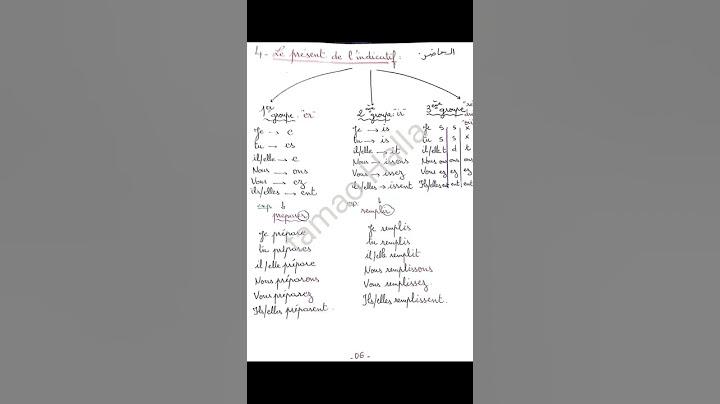 4 - Le présent de l'indicatif :
1er groupe : "er"
Je → e
tu → es
il/elle → e
Nous → ons
Vous → ez
ils/elles → ent
exp
préparer
Je prépare
tu prépares
il/elle prépare
Nous préparons
Vous préparez
Ils/elles préparent.
2ème groupe : "ir"
Je → is
tu → is
il/elle → it
Nous → issons
Vous → issez
ils/elles → issent
exp
remplir
Je remplis
tu remplis
il/elle remplit
Nous remplissons
Vous remplissez
Ils/elles remplissent.
3ème groupe
Je s s x
tu s s x
il/elle t d t
Nous ons ons ons
Vous ez ez ez
Ils/elles ent ent ent
- 06 -